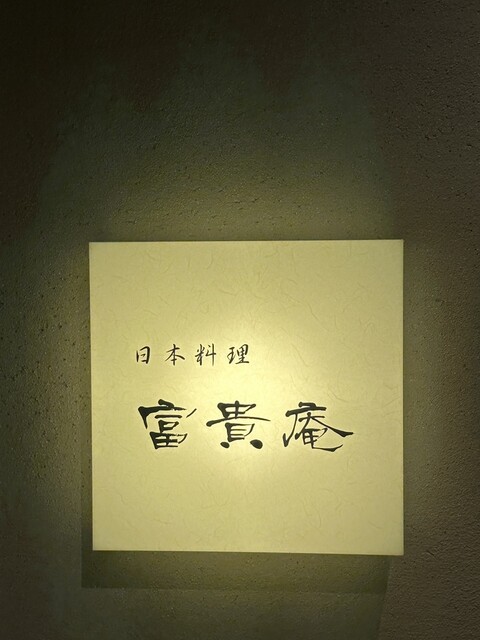 日本料理
富貴庵